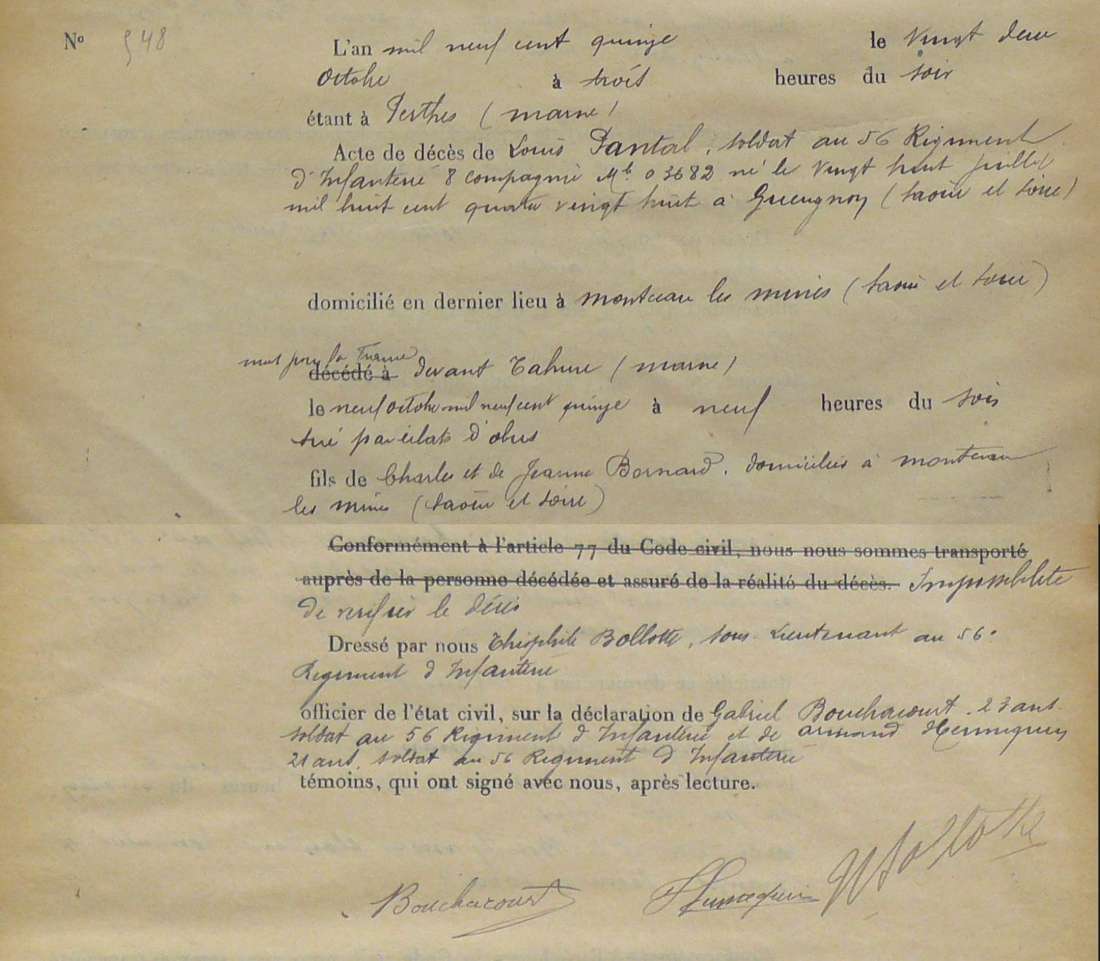 N° 948
L'an mil neuf cent quinze le vingt deux
Octobre à trois heures du soir
étant à Perthes (marne)
Acte de décès de Louis Pantal, soldat au 56 Regiment
d'Infanterie 8 compagnie Mle 03682 né le vingt huit juillet
mil huit cent quatre vingt huit à Gueugnon (Saone et Loire)
domicilié en dernier lieu à montceau les mines (Saone et Loire)
mort pour la France
décédé à devant Tahure (marne)
le neuf octobre mil neuf cent quinze à neuf heures du soir
tué par éclats d'obus
fils de Charles et de Jeanne Bernard, domiciliés à montceau
les mines (Saone et Loire)
Conformément à l'article 77 du Code civil, nous nous sommes transporté
auprès de la personne décédée et assuré de la réalité du décès. Impossibilité
de verifier le décès
Dressé par nous Théophile Bollotte, sous-Lieutenant au 56e
Regiment d'Infanterie
officier de l'état civil, sur la déclaration de Gabriel Bouchacourt, 23 ans
soldat au 56 Regiment d'Infanterie et de armand Hennequin
21 ans, soldat au 56 Regiment d'Infanterie
témoins, qui ont signé avec nous, après lecture.
Bouchacourt Hennequin Bollotte